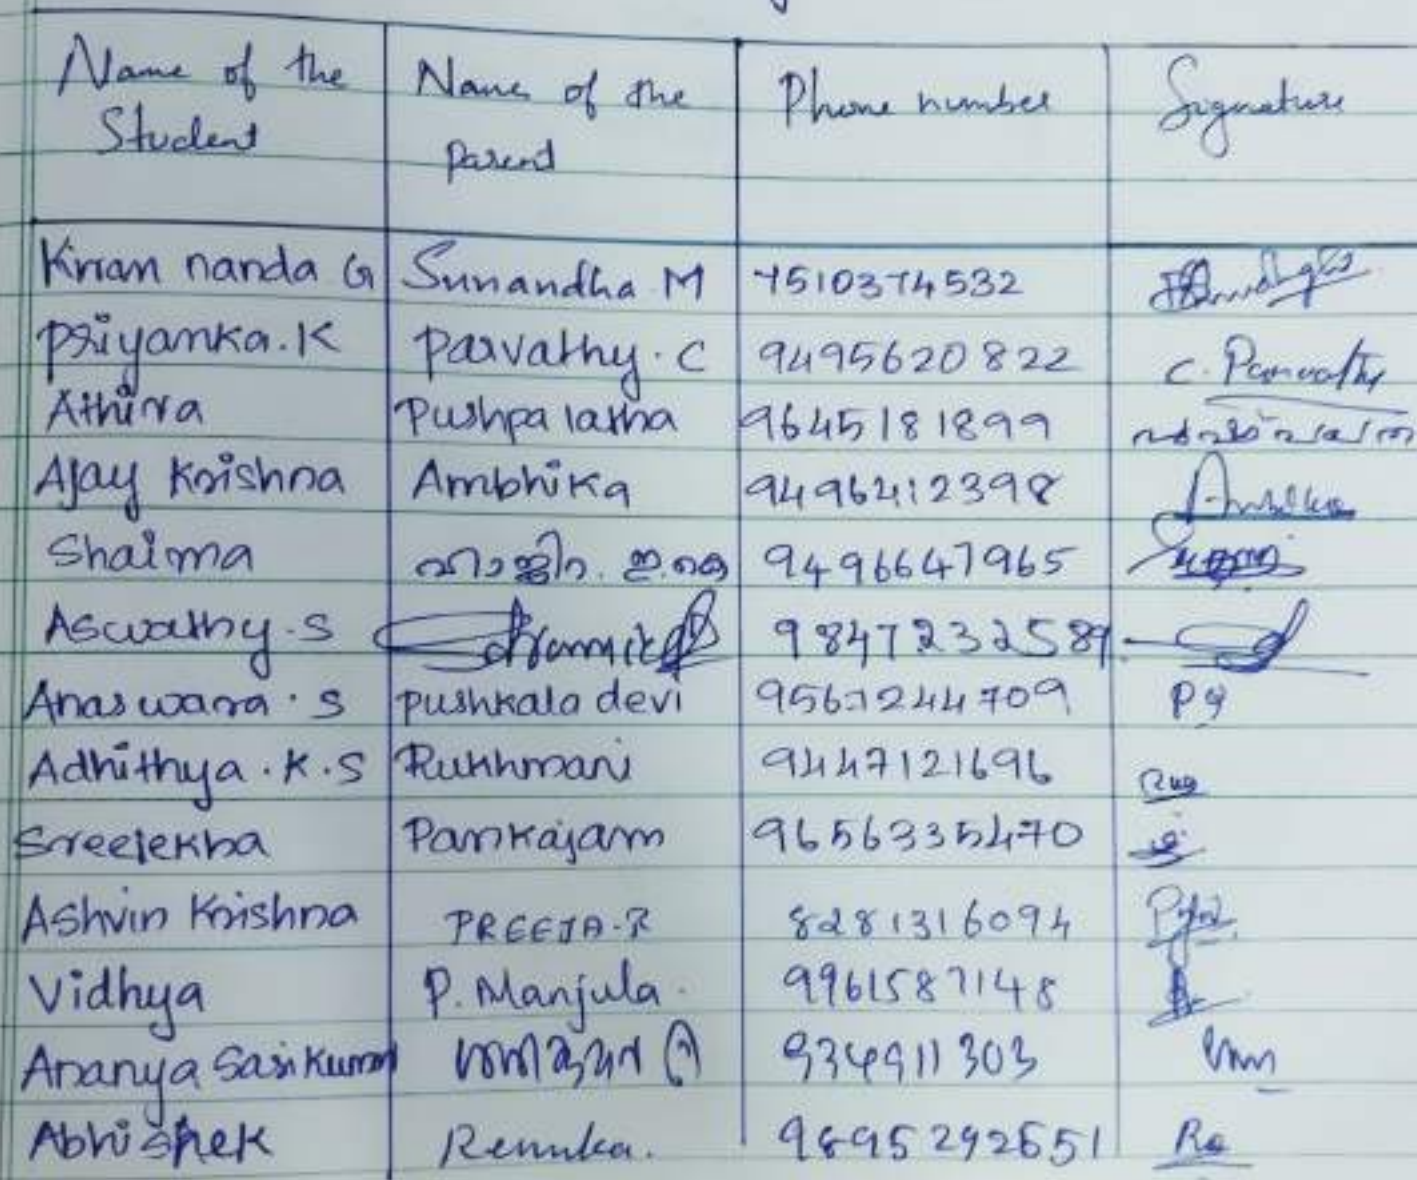 Name of the Name of the Phone number Signature
Student Parent
Kiran nanda G Sunandha M 7510374532
Priyanka.K Parvathy.C 9495620822 C. Parvathy
Athira Pushpa latha 9645181899
Ajay Krishna Ambhika 9496412398 Ambika
Shaima 9496647965
Aswathy.S 9847232589
Anaswara.S Pushkala devi
Adhithya.K.S Rukhmani 9447121696
Sreelekha Pankajam 9656335470
Ashvin Krishna PREEJA.R 8281316094
Vidhya P. Manjula. 9961587148
Ananya Sasikumar
Abhishek Renuka. 9895292651 Re